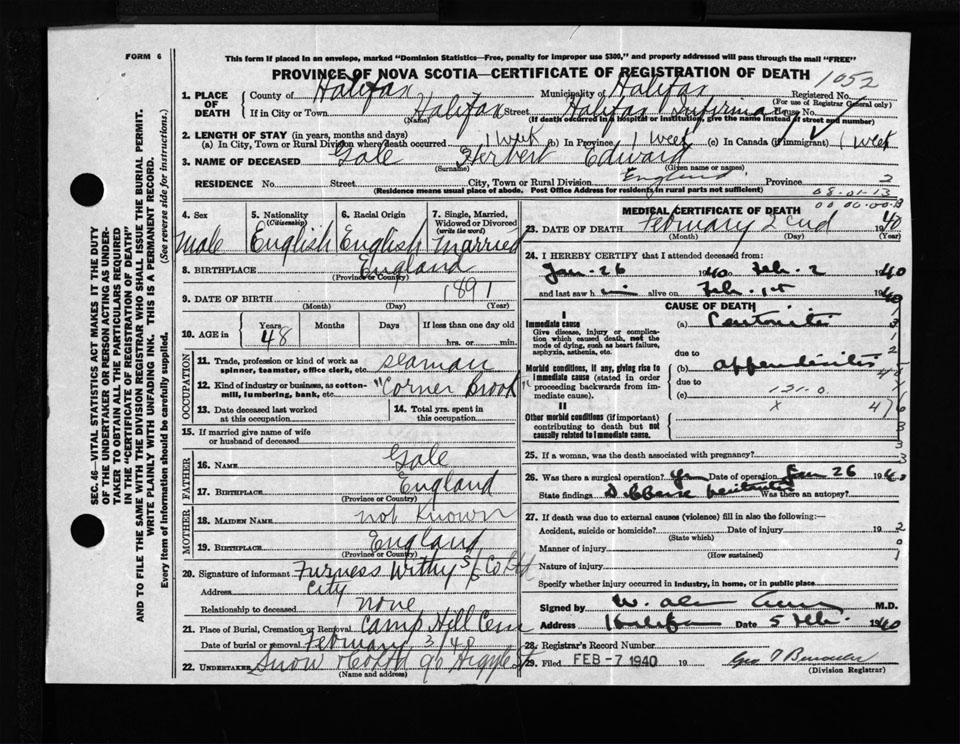 FORM 6
This form if placed in an envelope, marked "Dominion Statistics—Free, penalty for improper use $300," and properly addressed will pass through the mail "FREE"
PROVINCE OF NOVA SCOTIA—CERTIFICATE OF REGISTRATION OF DEATH
1052
1. PLACE OF DEATH
County of Halifax Municipality of Halifax Registered No.
(For use of Registrar General only)
If in City or Town Halifax Street Halifax Infirmary House No.
(Name) (If death occurred in a Hospital or Institution, give the name instead of street and number)
2. LENGTH OF STAY (in years, months and days)
(a) In City, Town or Rural Division where death occurred 1 week (b) In Province 1 week (c) In Canada (if immigrant) 1 week
3. NAME OF DECEASED Gale Herbert Edward
(Surname) (Given name or names)
RESIDENCE No. Street City, Town or Rural Division England Province 2
(Residence means usual place of abode. Post Office Address for residents in rural parts not sufficient)
08-01-13
4. Sex 5. Nationality (Citizenship) 6. Racial Origin 7. Single, Married, Widowed or Divorced (write the word)
Male English English Married
8. BIRTHPLACE England
(Province or Country)
9. DATE OF BIRTH 1891
(Month) (Day) (Year)
10. AGE in Years Months Days If less than one day old
48 hrs. or min.
OCCUPATION
11. Trade, profession or kind of work as spinner, teamster, office clerk, etc. seaman
12. Kind of industry or business, as cotton-mill, lumbering, bank, etc. "Corner Brook"
13. Date deceased last worked at this occupation 14. Total yrs. spent in this occupation
15. If married give name of wife or husband of deceased
FATHER
16. NAME Gale
17. BIRTHPLACE England
(Province or Country)
MOTHER
18. MAIDEN NAME not known
19. BIRTHPLACE England
(Province or Country)
20. Signature of informant Furness Withy S/S Co Ltd
Address City
Relationship to deceased none
21. Place of Burial, Cremation or Removal Camp Hill Cem
Date of burial or removal February 3/40
22. UNDERTAKER Snow &amp; Co Ltd 90 Argyle St
(Name and address)
MEDICAL CERTIFICATE OF DEATH
23. DATE OF DEATH February 2nd 1940
(Month) (Day)
24. I HEREBY CERTIFY that I attended deceased from:
Jan-26 1940 to Feb-2 1940
and last saw him alive on Feb-1st 1940
CAUSE OF DEATH
I
Immediate cause (a) Peritonitis
Give disease, injury or complication which caused death, not the mode of dying, such as heart failure, asphyxia, asthenia, etc.
due to
Morbid conditions, if any, giving rise to immediate cause (stated in order proceeding backwards from immediate cause). (b) appendicitis
due to
(c) 121-0
x 47
II
Other morbid conditions (if important) contributing to death but not causally related to immediate cause.
25. If a woman, was the death associated with pregnancy?
26. Was there a surgical operation? Yes Date of operation Jan 26 1940
State findings Diffuse peritonitis Was there an autopsy?
27. If death was due to external causes (violence) fill in also the following:—
Accident, suicide or homicide? Date of injury 19
(State which)
Manner of injury
(How sustained)
Nature of injury
Specify whether injury occurred in industry, in home, or in public place
Signed by W. Alan M.D.
Address Halifax Date 5 Feb. 1940
28. Registrar's Record Number
29. Filed FEB -7 1940 19
(Division Registrar)
SEC. 46—VITAL STATISTICS ACT MAKES IT THE DUTY OF THE UNDERTAKER OR PERSON ACTING AS UNDERTAKER TO OBTAIN ALL THE PARTICULARS REQUIRED IN THE "CERTIFICATE OF REGISTRATION OF DEATH" AND TO FILE THE SAME WITH THE DIVISION REGISTRAR WHO SHALL ISSUE THE BURIAL PERMIT.
WRITE PLAINLY WITH UNFADING INK. THIS IS A PERMANENT RECORD.
Every item of information should be carefully supplied. (See reverse side for instructions.)